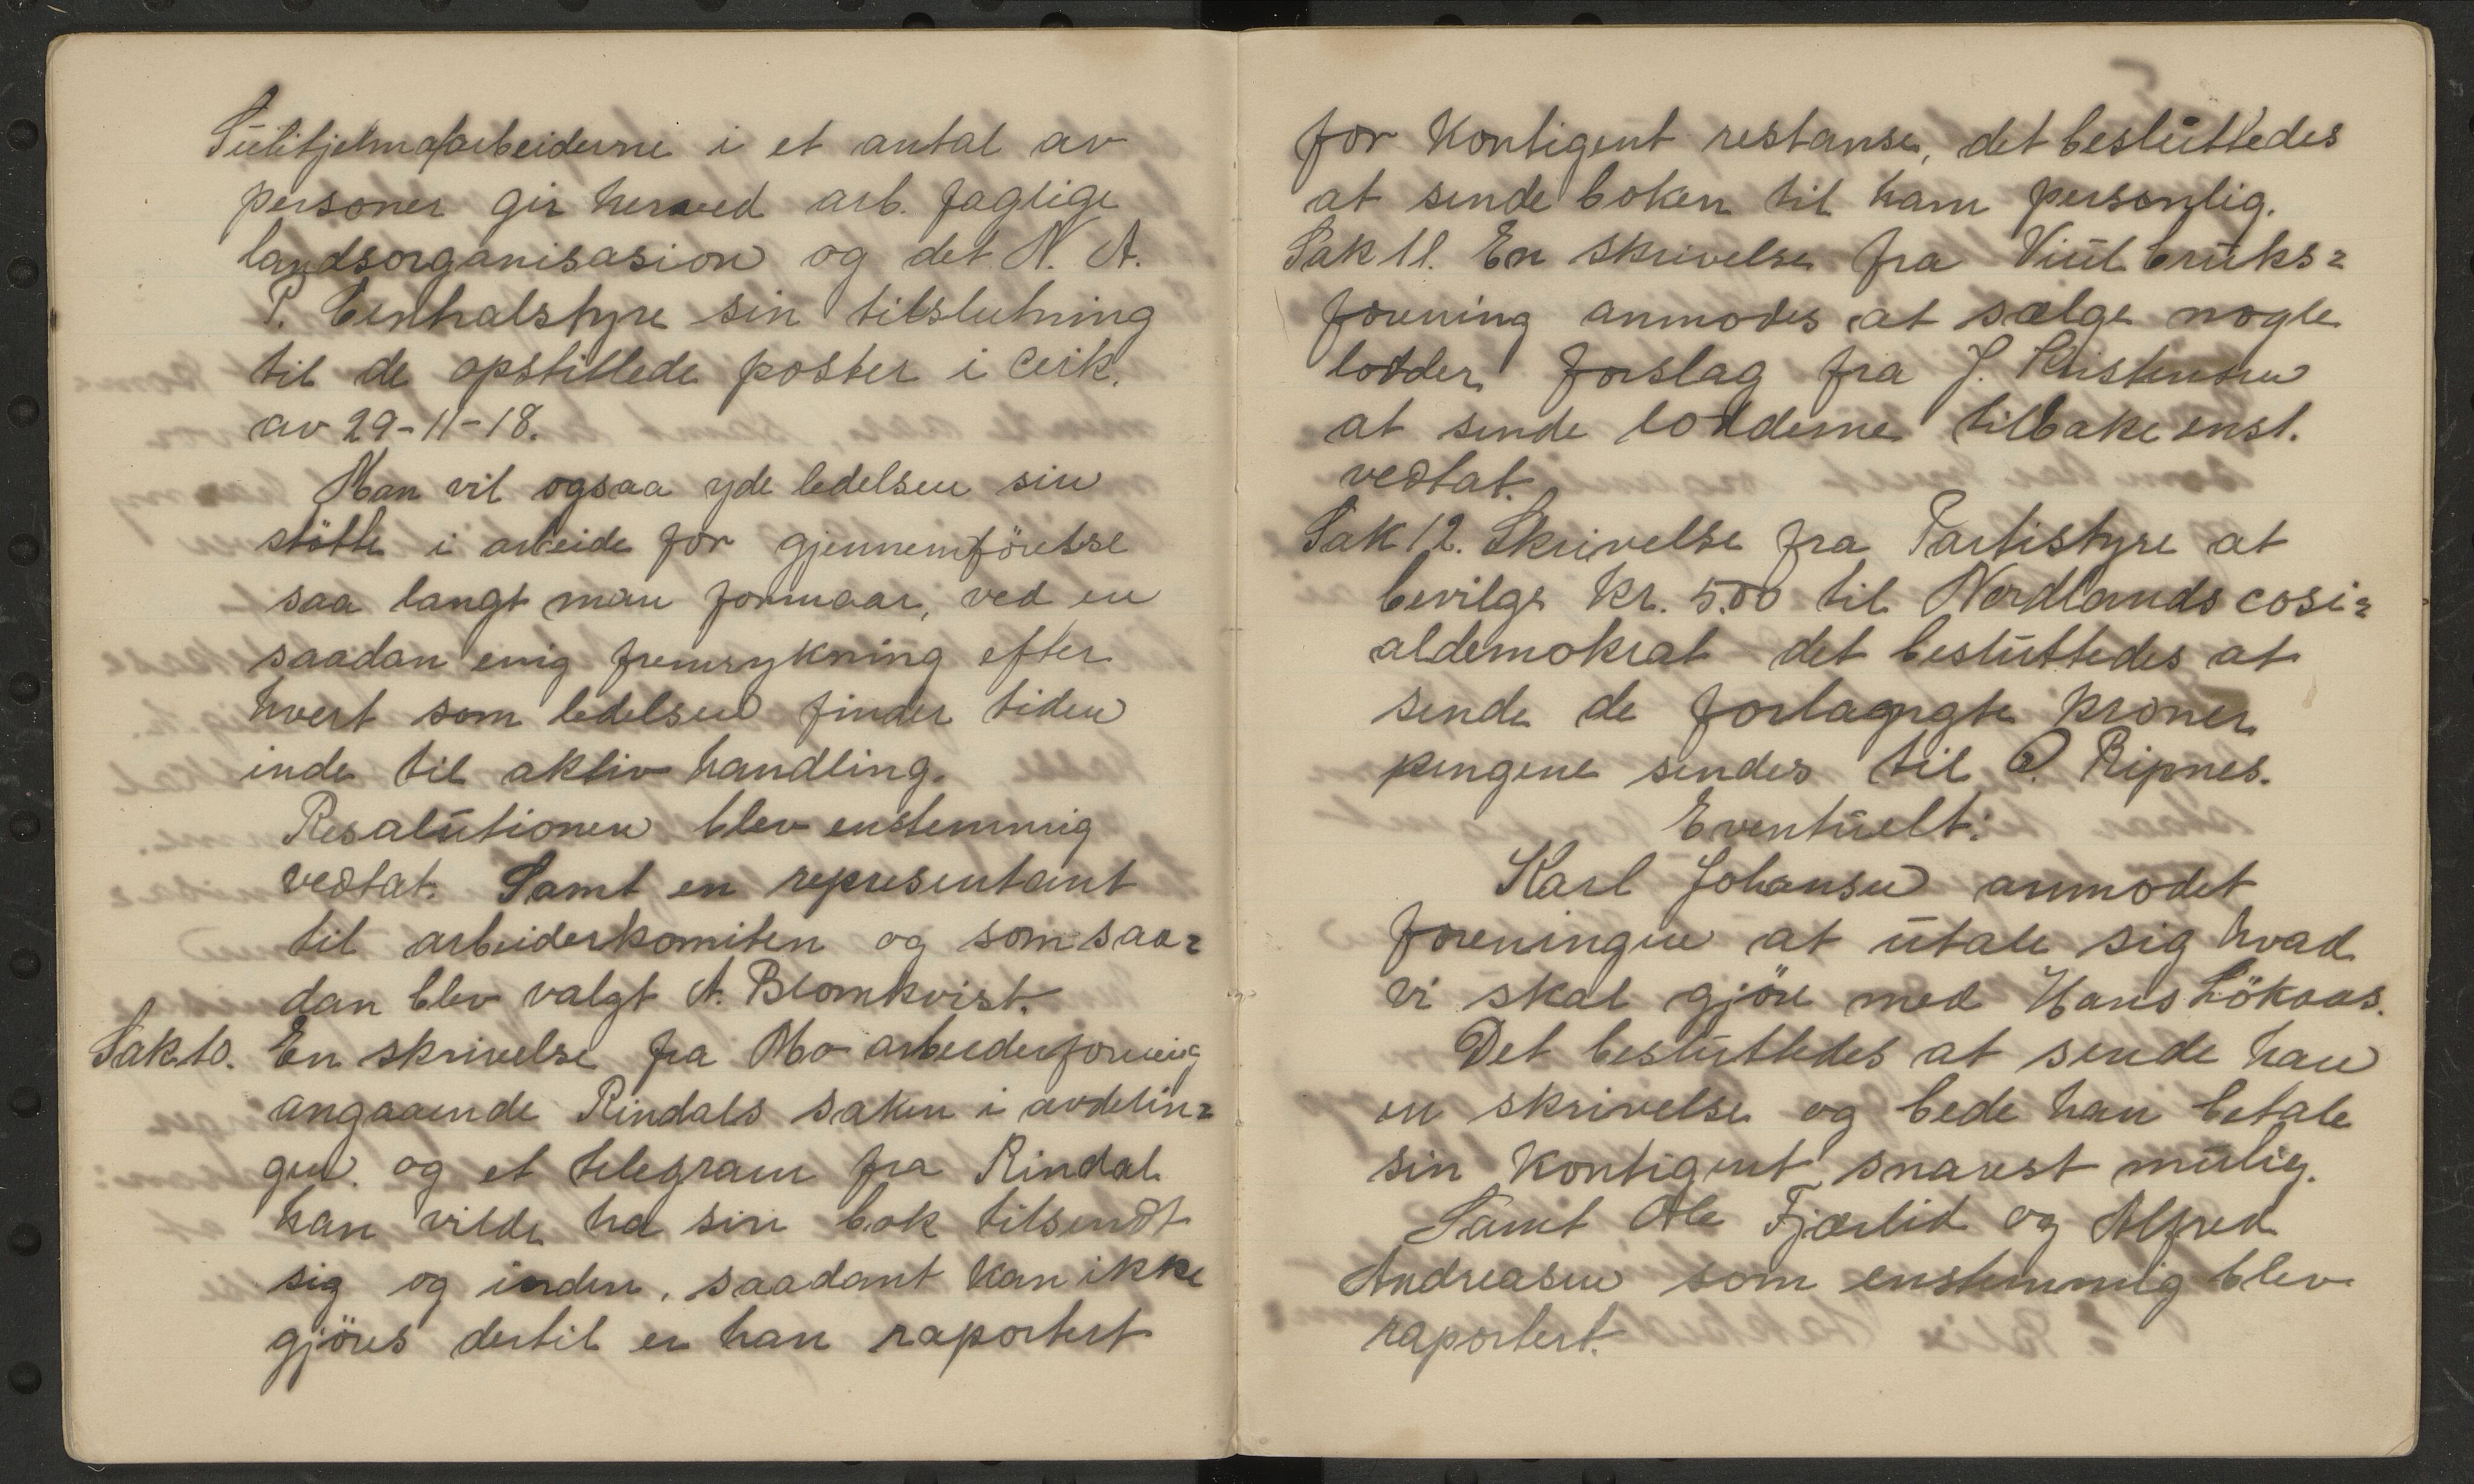 Sulitjelmaarbeiderne i et antal av
personer gir herved arb. faglige
landsorganisasion og det N. A.
P. Centralstyre sin tilslutning
til de opstillede poster i cirk.
av 29-11-18.
Man vil ogsaa yde ledelsen sin
stötte i arbeide for gjennemförelse
saa langt man formaar, ved en
saadan enig fremrykning efter
hvert som ledelsen finder tiden
inde til aktiv handling.
Resalutionen blev enstemmig
vedtat. Samt en representant
til arbeiderkomiten og som saa=
dan blev valgt A. Blomkvist.
Sak 10. En skrivelse fra Mo arbeiderforening
angaaende Rindals saken i avdelin=
gen. og et telegram fra Rindal
han vilde ha sin bok tilsendt
sig og inden, saadant kan ikke
gjöres dertil er han raportert
for Kontigent restanse, det besluttedes
at sende boken til ham personlig.
Sak 11. En skrivelse fra Viul bruks=
forening anmodes at sælge nogle
lodder forslag fra J. Kristensen
at sende lodderne tilbake enst.
vedtat.
Sak 12. Skrivelse fra Partistyre at
bevilge Kr. 5.00 til Nordlands cosi=
aldemokrat det besluttedes at
sende de forlangte kroner
pengene sendes til O. Ripnes.
Eventuelt:
Karl Johansen anmodet
foreningen at utale sig hvad
vi skal gjöre med Hans Lökaas.
Det besluttedes at sende han
en skrivelse og bede han betale
sin Kontigent snarest mulig.
Samt Ole Fjærlid og Alfred
Andreasen som enstemmig blev
raportert.